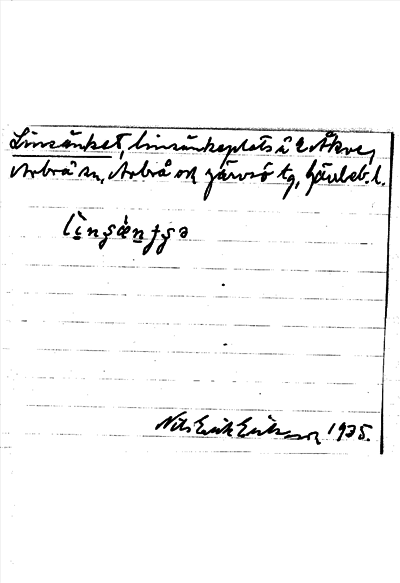 Linsänket, linsänkeplats i 2 Åkre,
Arbrå sn, Arbrå och Järvsö tg, Gävleb. l.
lìnsä̀nʃsə
Nils Erik Eriksson 1935.